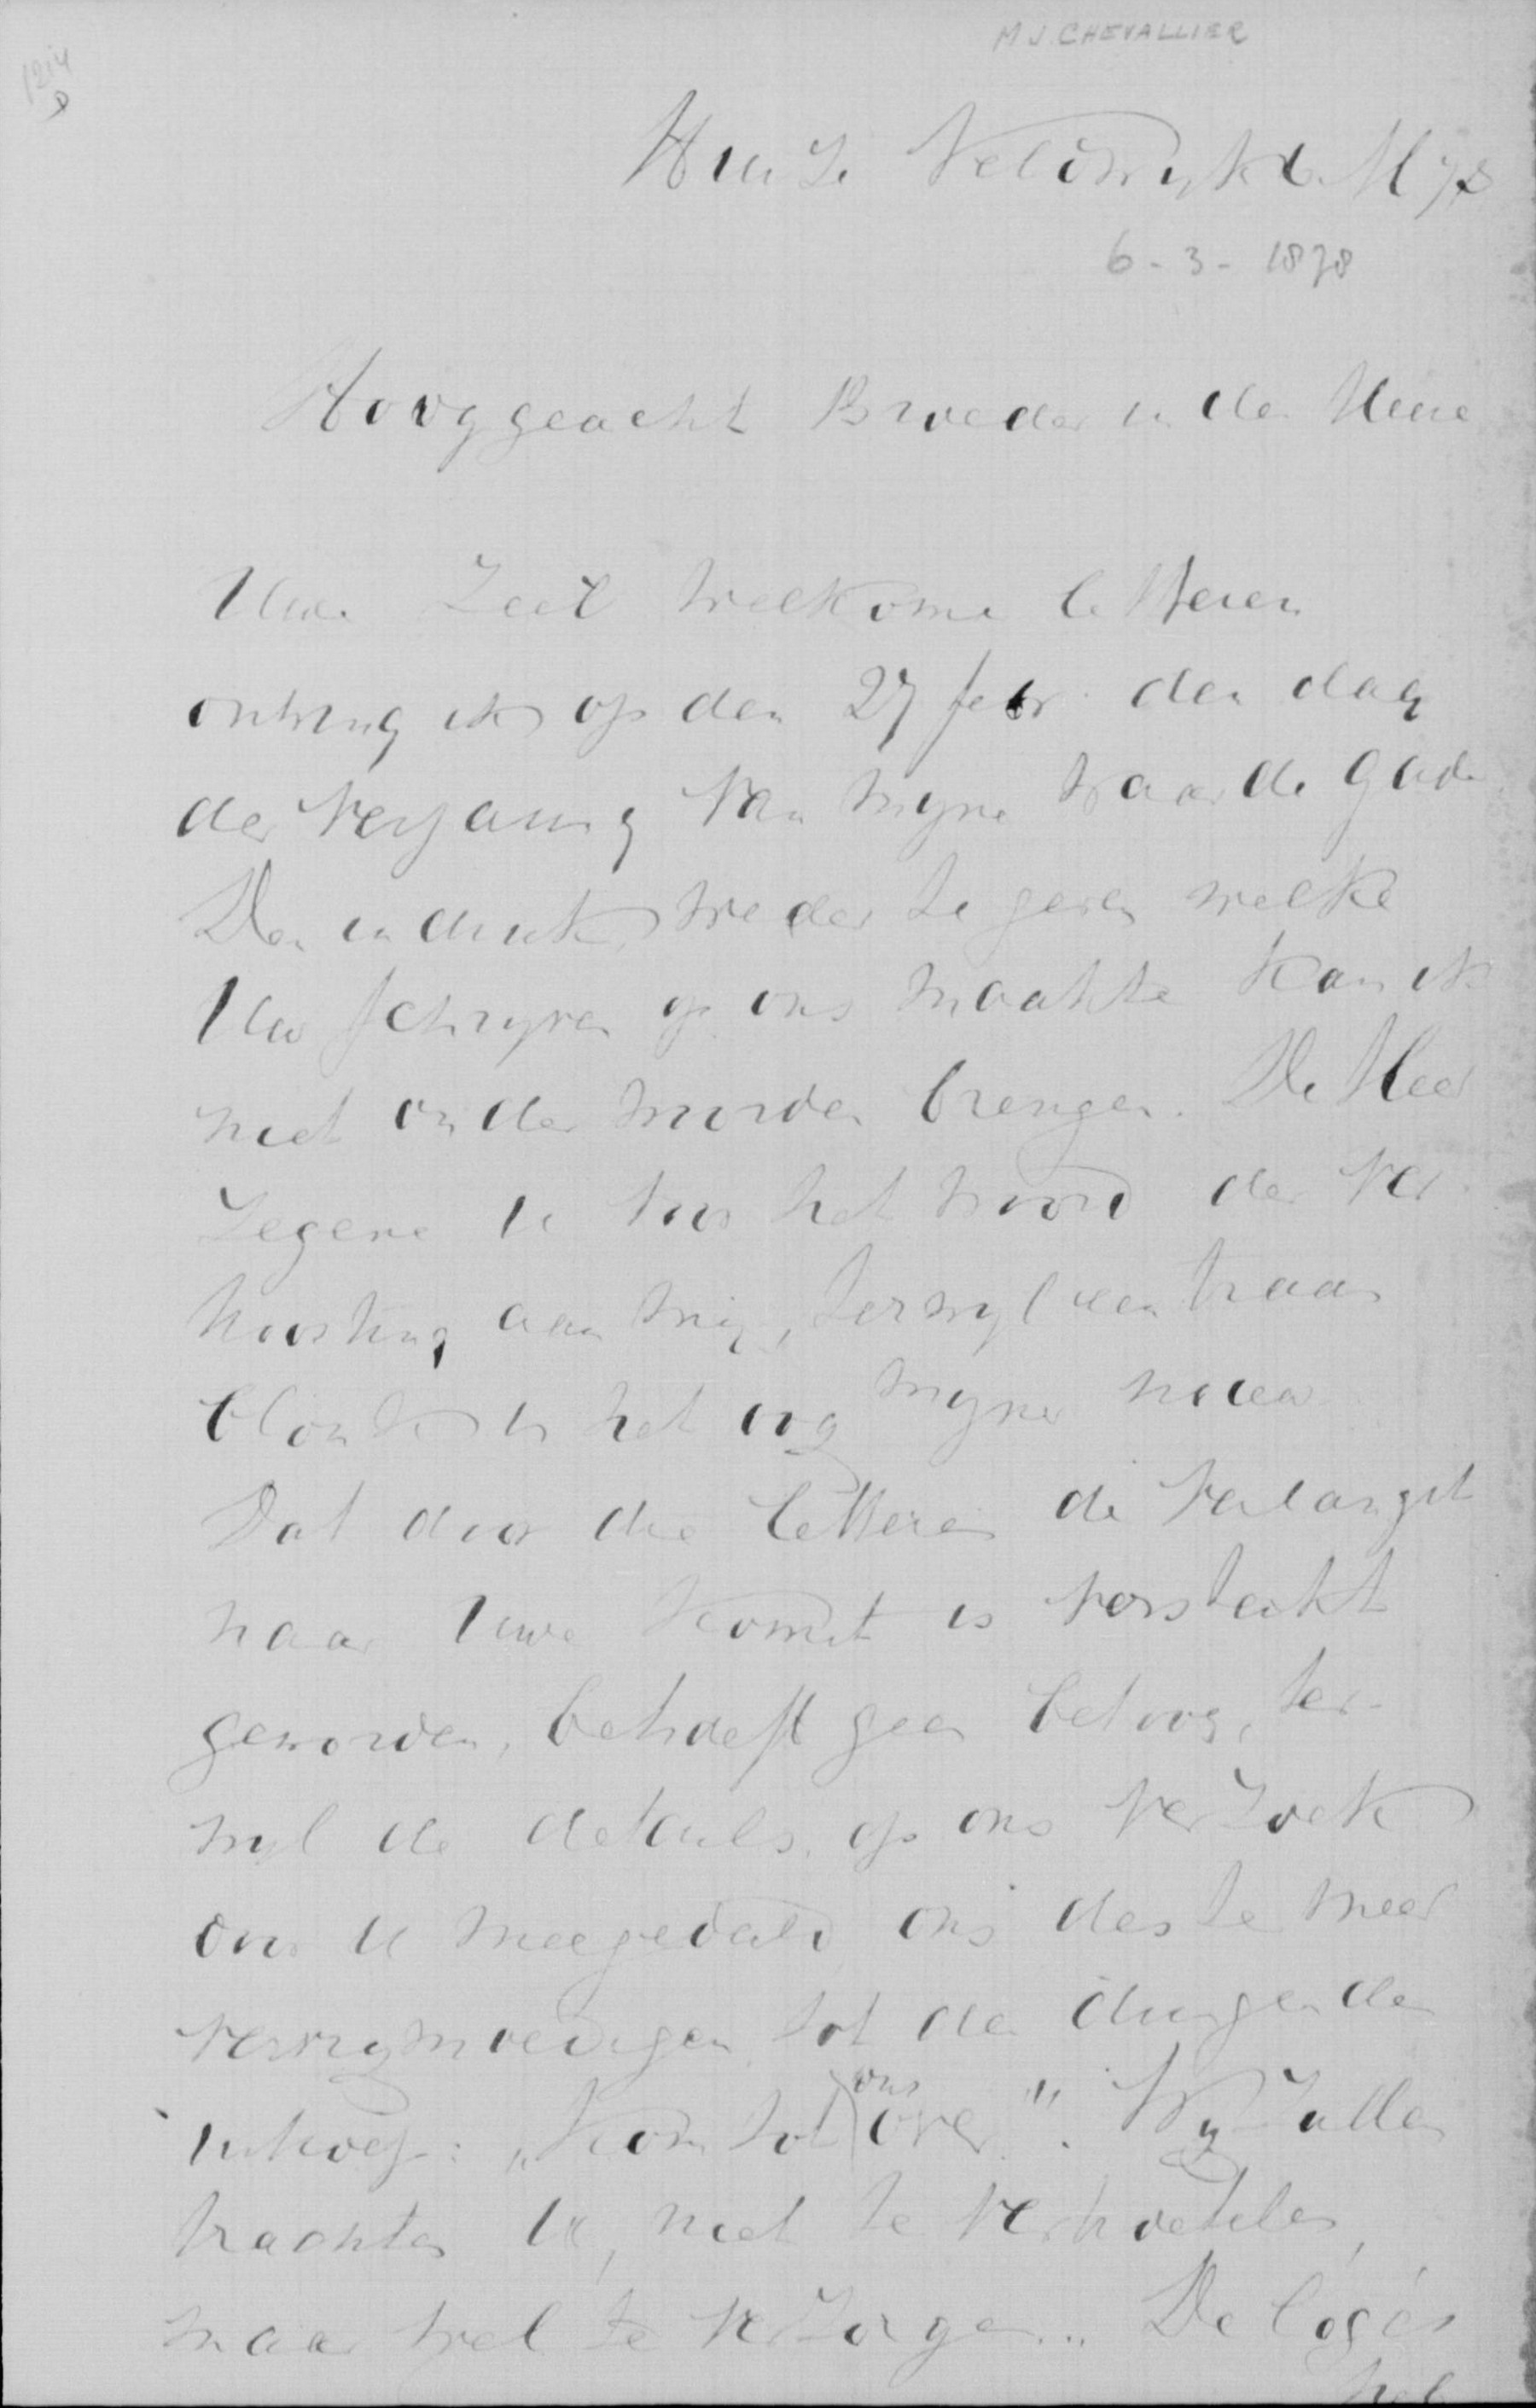 M J. CHEVALLIER
1214
Huize Veldwyk
6-3-1878
Hooggeacht Broeder in den Heere
Uwe zeer welkome letteren
ontving ik op den 27 febr. den dag
der verjaring van myne waarde Gade
Den indruk weder te geven welke
Uw schryven op ons maakte kan ik
niet onder woorden brengen. De Heer
zegene U voor het woord der ver-
troosting aan my, terwyl een traan
blonk in het oog myner vrouw.
Dat door die letteren de verlangst
naar Uwe komst is versterkt
geworden, behoeft geen betoog, ter-
wyl de details, op ons verzoek
door U meegedeeld ons des te meer
vervrymoedigen tot den dringenden
uitroep: "Kom tot ons over". Wy zullen
trachten U, niet te vertroetelen,
maar wel te verzorgen.. De logés